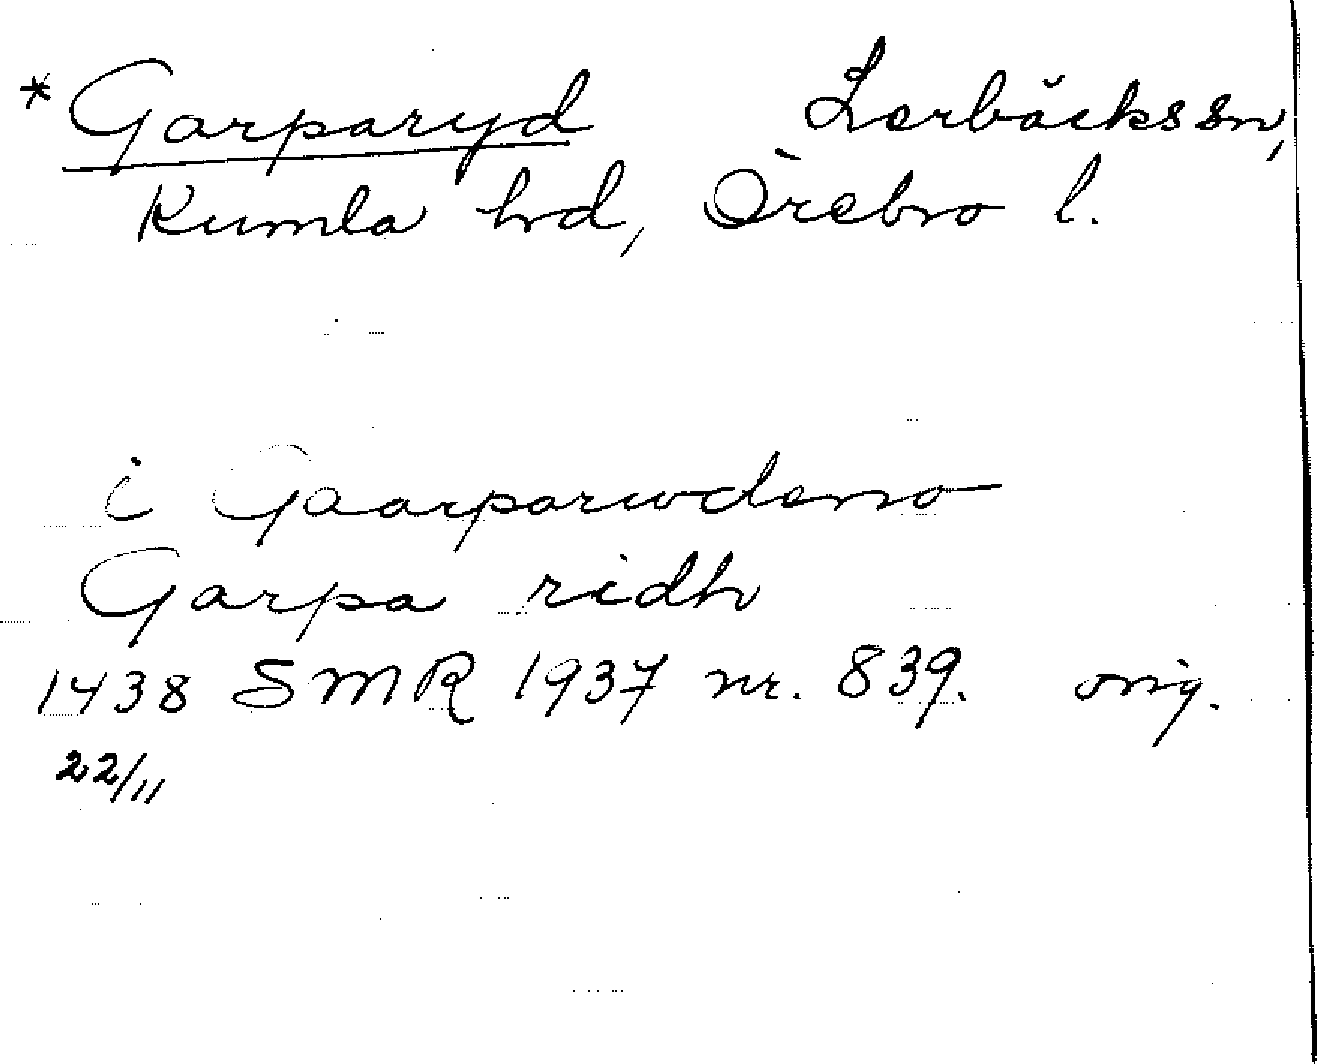 *Garparyd Lerbäckssn,
Kumla hrd, Örebro l.
i Gaarparudeno
Garpa ridh
1438 SMR 1937 nr. 839. orig.
22/11